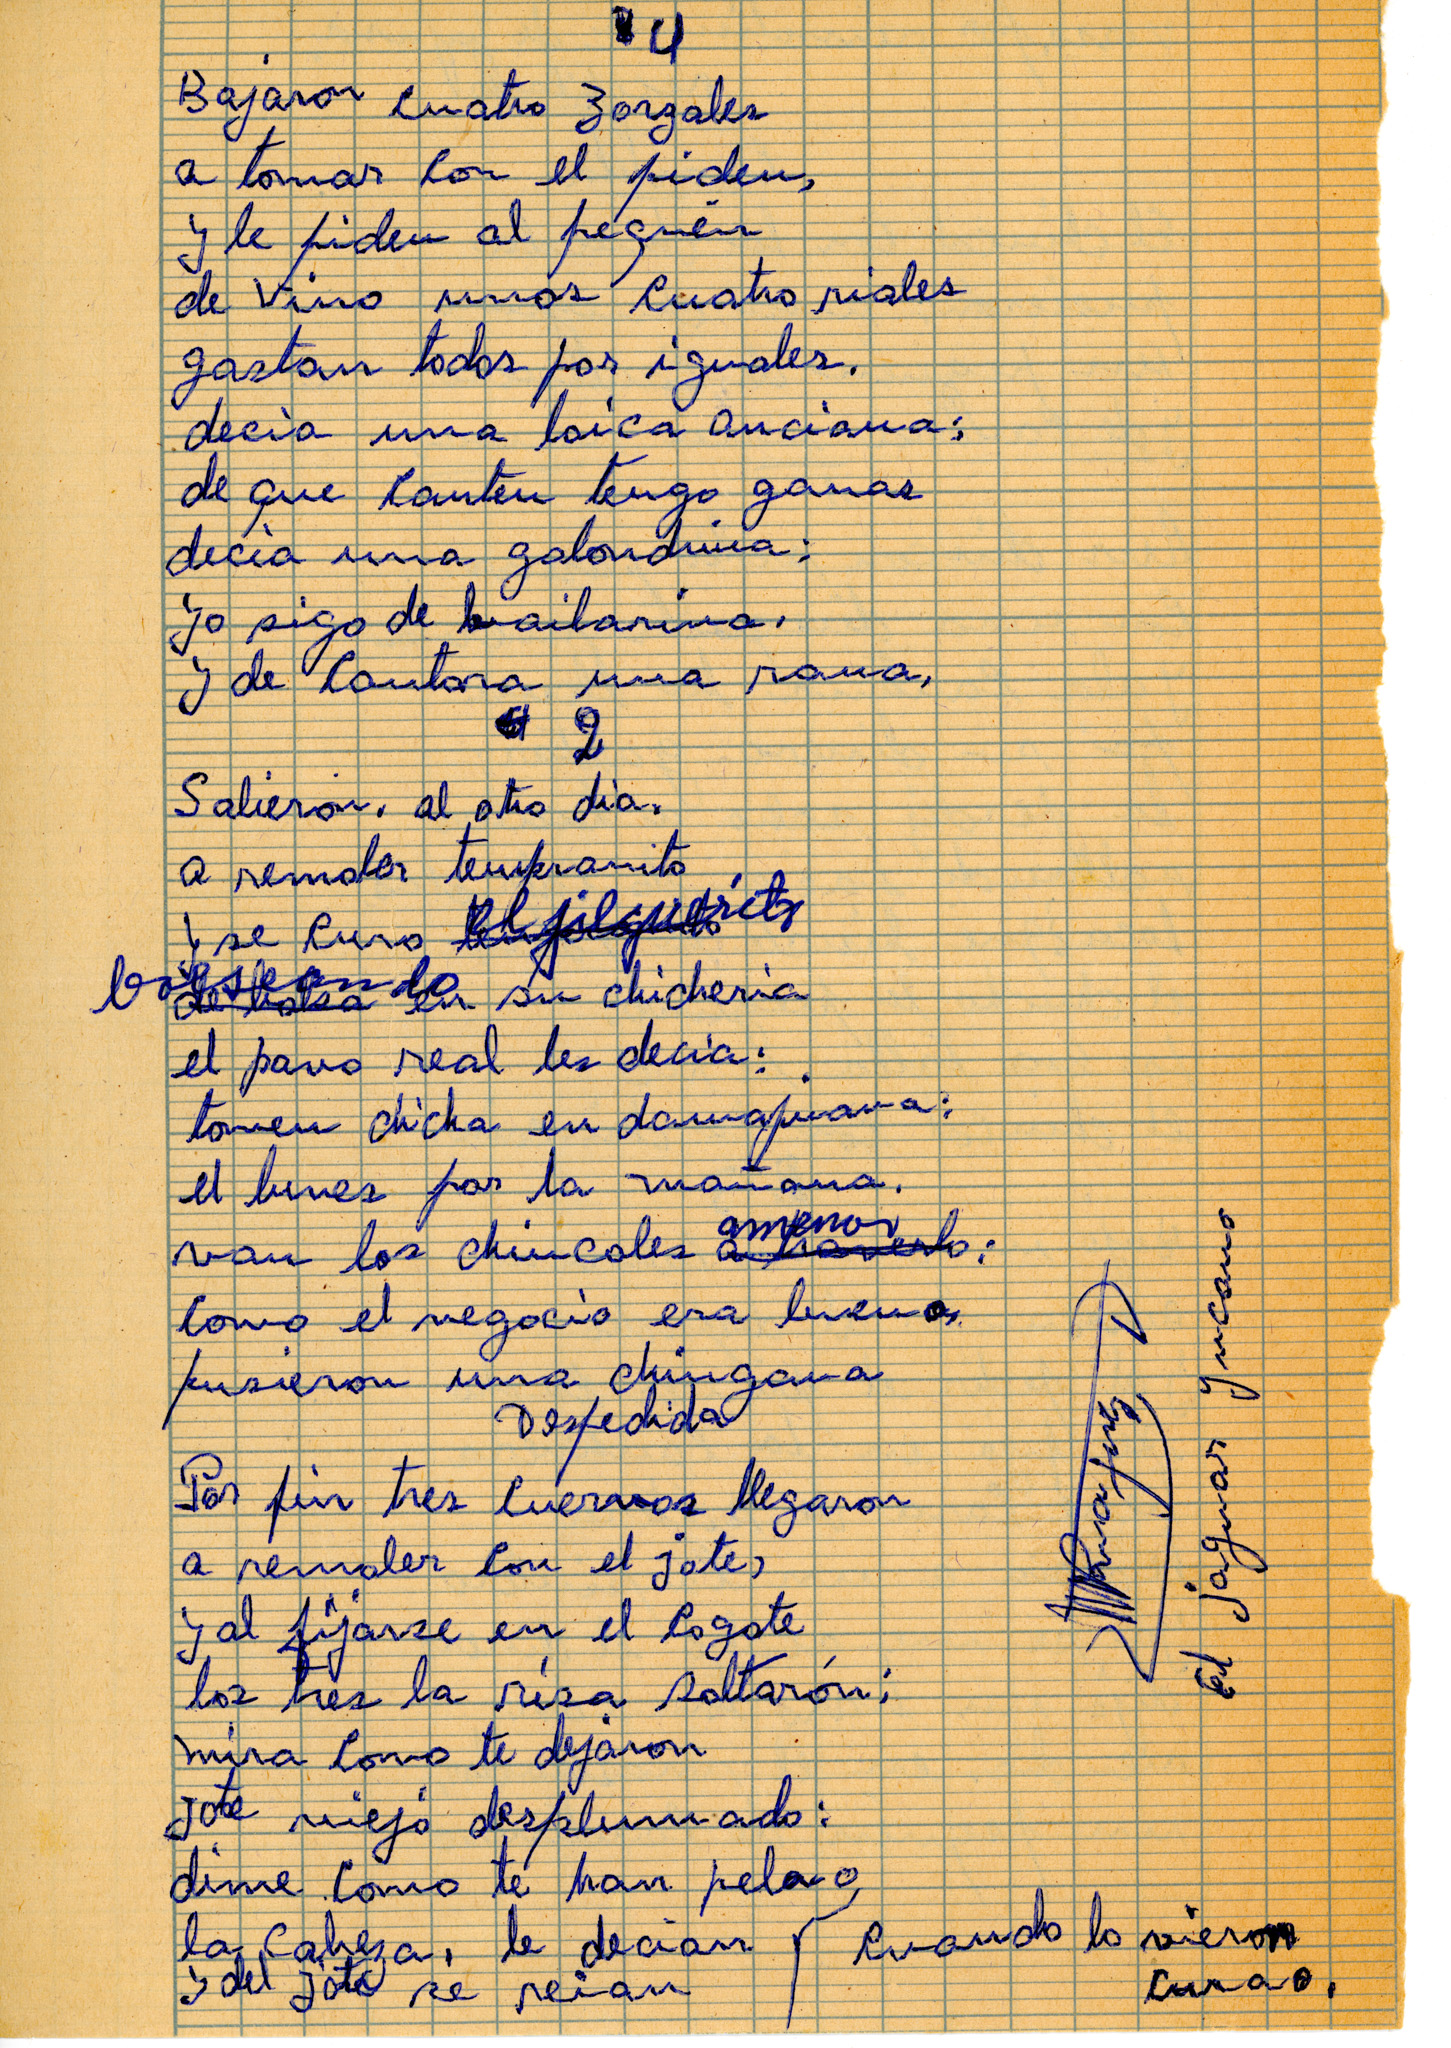 4
Bajaron cuatro Zorzales
a tomar con el piden,
y le piden al pequén
de vino unos cuatro riales
gastan todos por iguales.
decia una loica anciana;
de que canten tengo ganas
decia una golondrina;
yo sigo de bailarina,
y de cantora una rana,
2
Salierón. al otro dia.
a remoler tempranito
y se curo el jilguerito
bolseando en su chicheria
el pavo real les decia:
tomen chicha en damajuana:
el lunes por la mañana.
van los chincoles amenos
como el negocio era bueno,
pusieron una chingana
Despedida
Por fin tres cuervos llegaron
a remoler con el jote,
y al fijarse en el cogote
los tres la risa soltarón;
mira como te dejaron
jote viejo desplumado:
dime como te han pelao
la cabeza, le decian
y del jote se reian
cuando lo vieron
curao.
El jaguar Yncano